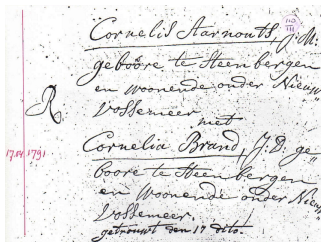 Cornelis Aarnouts, J: M:
110
111
geboore te Steenbergen
en woonende onder Nieuw„
Vossemeer
R.
met
17.04.1791
Cornelia Brand, J: D: ge„
boore te Steenbergen
en woonende onder Nieuw„
Vossemeer.
getrouwt den 17 dito.